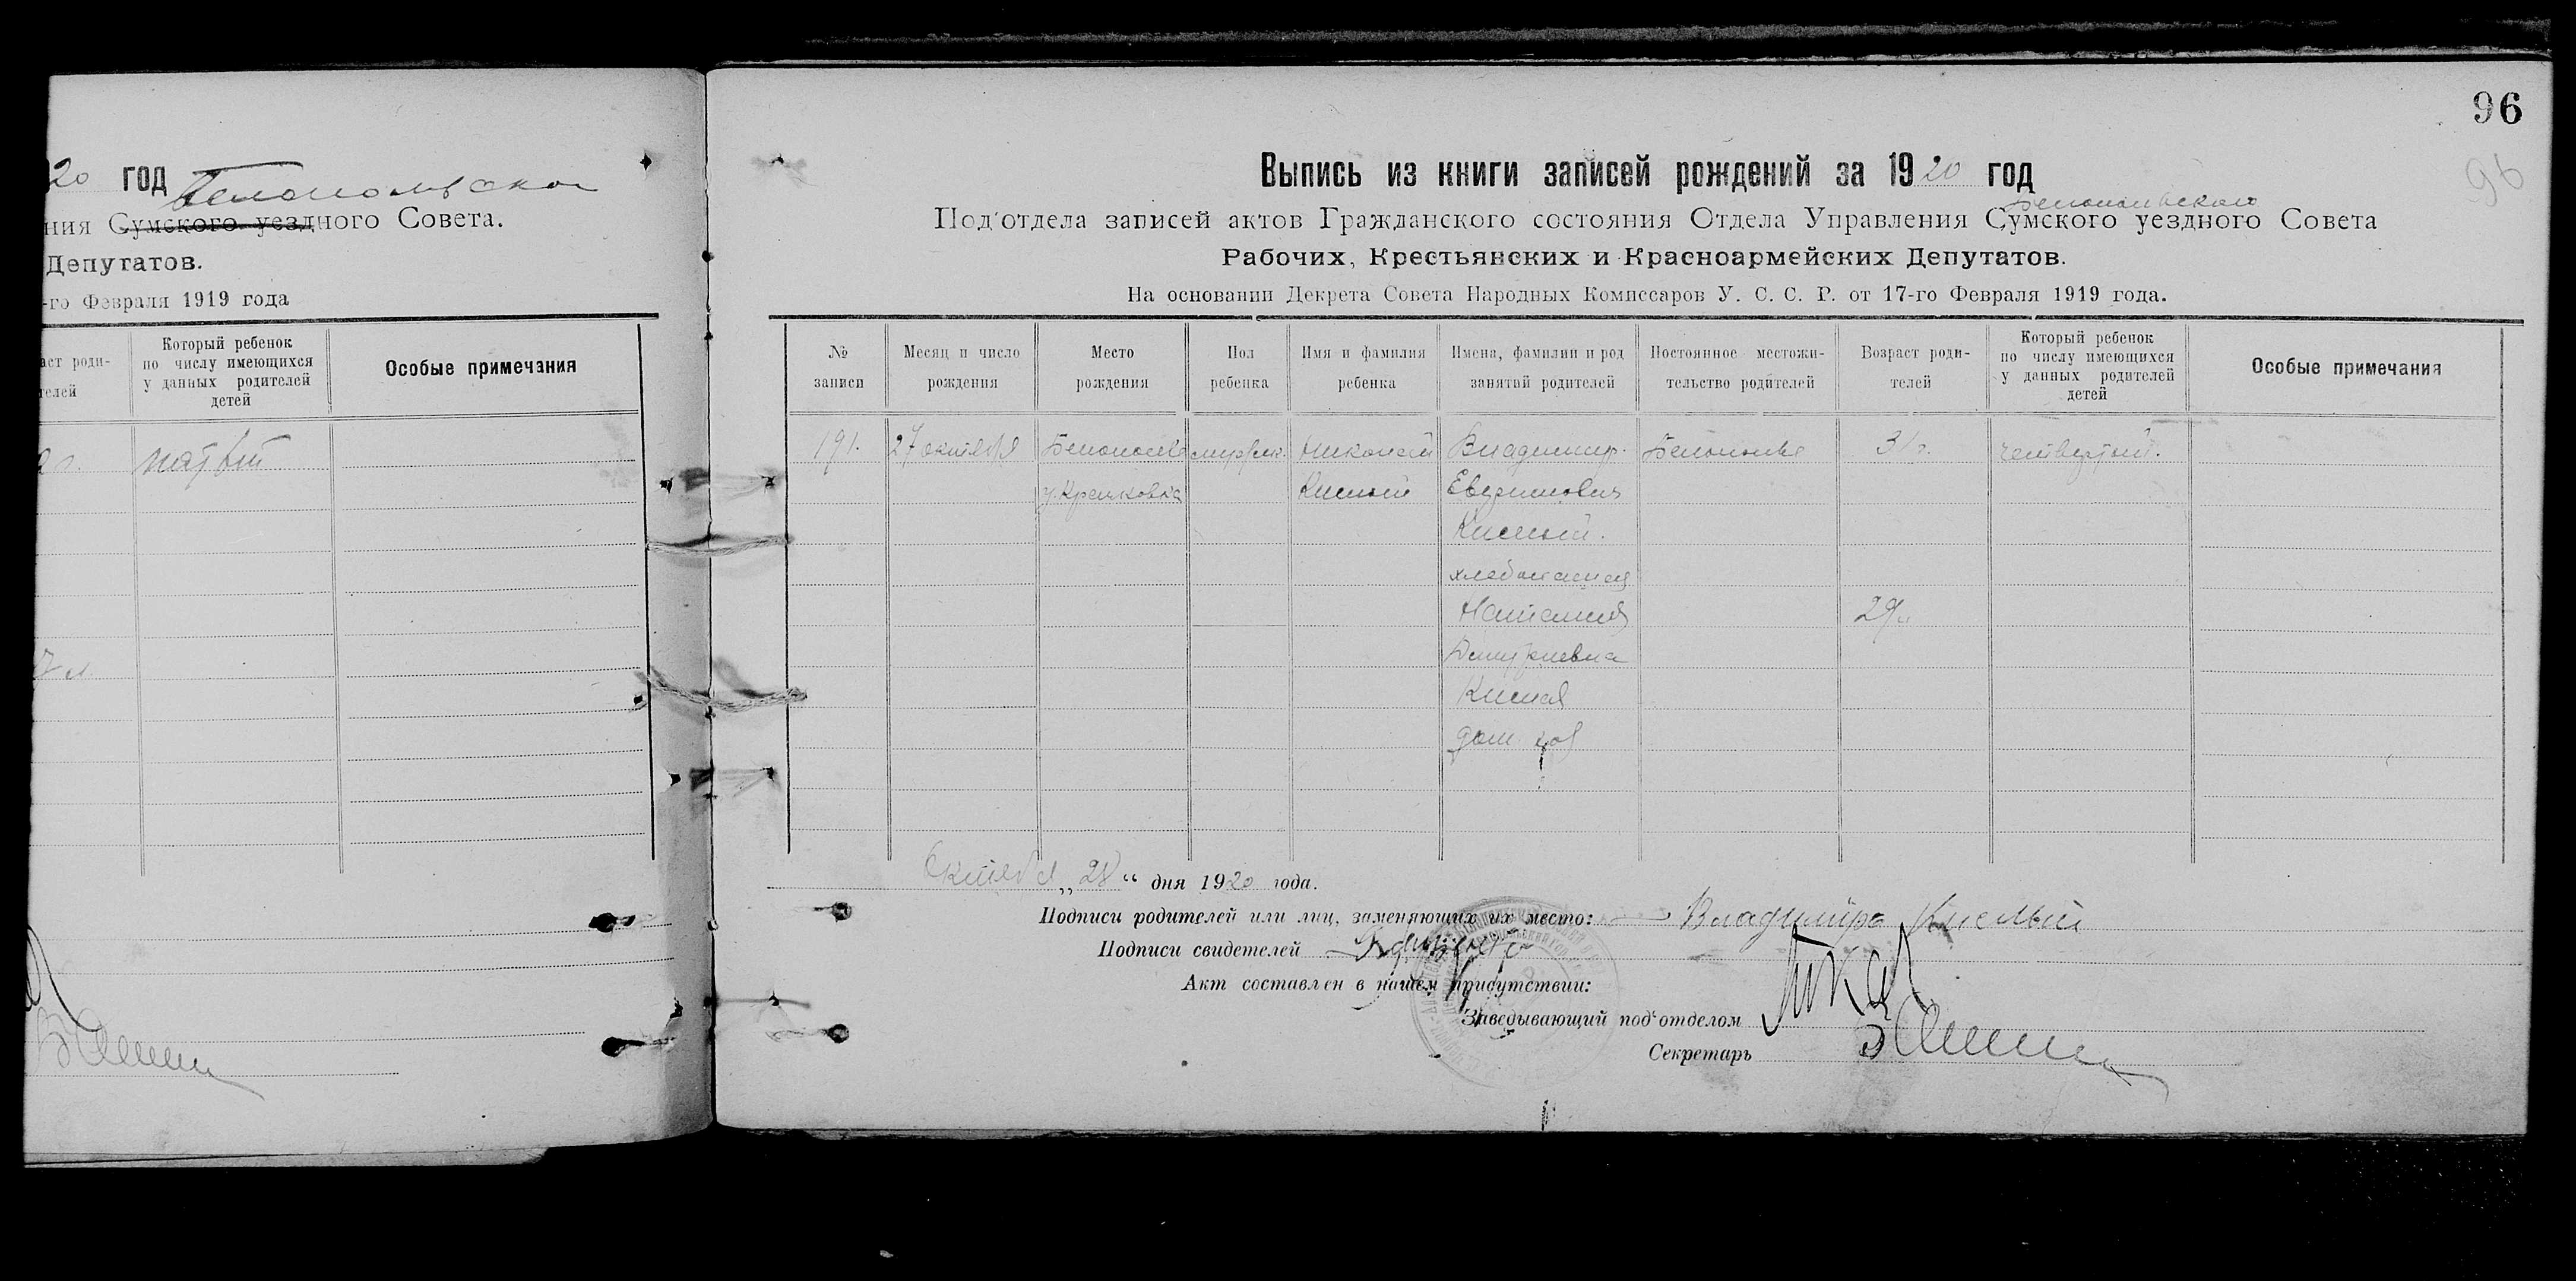 20 год Белопольского
ния Сумского уездного Совета.
Депутатов.
-го Февраля 1919 года
аст роди-
телей
Который ребенок
по числу имеющихся
у данных родителей
детей
Особые примечания
пятый
96
96
Выпись из книги записей рождений за 1920 год
Белопольского
Под'отдела записей актов Гражданского состояния Отдела Управления Сумского уездного Совета
Рабочих, Крестьянских и Красноармейских Депутатов.
На основании Декрета Совета Народных Комиссаров У. С. С. Р. от 17-го Февраля 1919 года.
№
записи
Месяц и число
рождения
Место
рождения
Пол
ребенка
Имя и фамилия
ребенка
Имена, фамилии и род
занятий родителей
Постоянное местожи-
тельство родителей
Возраст роди-
телей
Который ребенок
по числу имеющихся
у данных родителей
детей
Особые примечания
191. 27 октября Белополье мужск. Николай Владимир. Белополье 31 г. четвертый.
Кислый Евфимович
Кислый.
хлебопашец
Наталия 29
Дмитриевна
Кислая
дом. хоз
Октября „28“ дня 1920 года.
Подписи родителей или лиц, заменяющих их место: Владимиръ Кислый
Подписи свидетелей
Акт составлен в нашем присутствии:
Заведывающий под'отделом
Секретарь